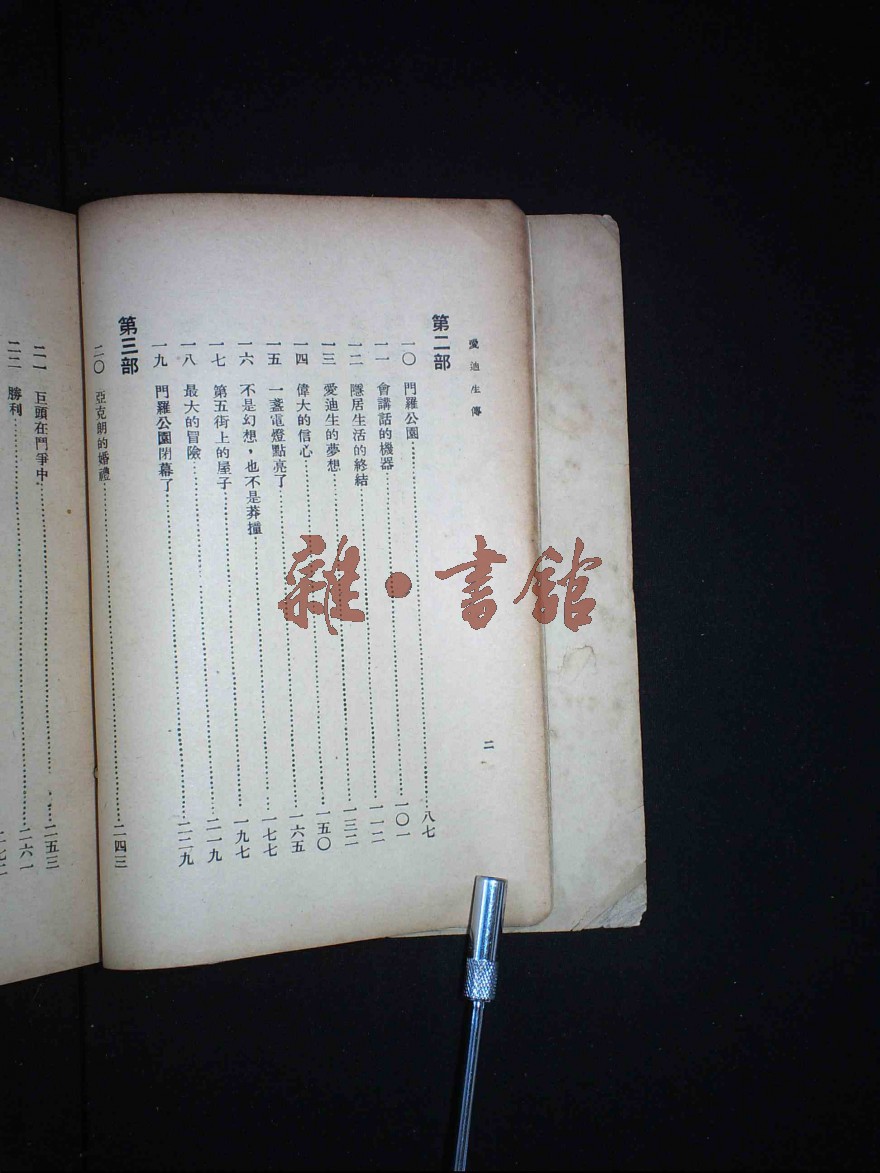 愛迪生傳
二
第二部
一〇 門羅公園……八七
一一 會講話的機器……一〇一
一二 隱居生活的終結……一一二
一三 愛迪生的夢想……一三二
一四 偉大的信心……一五〇
一五 一盞電燈點亮了……一六五
一六 不是幻想，也不是莽撞……一七七
一七 第五街上的屋子……一九七
一八 最大的冒險……二一九
一九 門羅公園閉幕了……二二九
第三部
二〇 亞克朗的婚禮……二四三
二一 巨頭在鬥爭中……二五三
二二 勝利……二六一
雜·書館